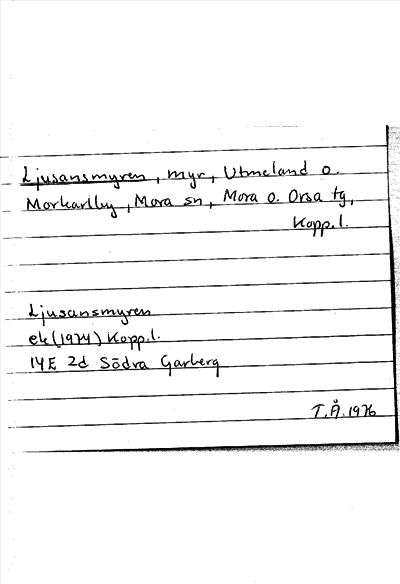 Ljusansmyren, myr, Utmeland o.
Morkarlby, Mora sn, Mora o. Orsa tg,
Kopp.l.
Ljusansmyren
ek (1974) Kopp.l.
14E 2d Södra Garberg
T.Å. 1976